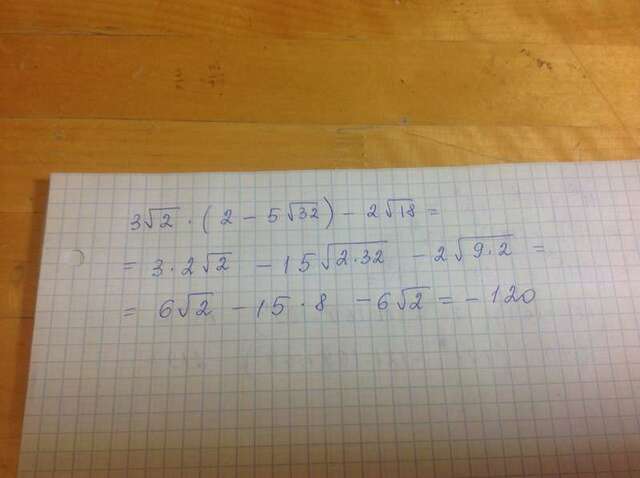 3√2 · (2 - 5√32) - 2√18 =
= 3·2√2 - 15√2·32 - 2√9·2 =
= 6√2 - 15·8 - 6√2 = - 120